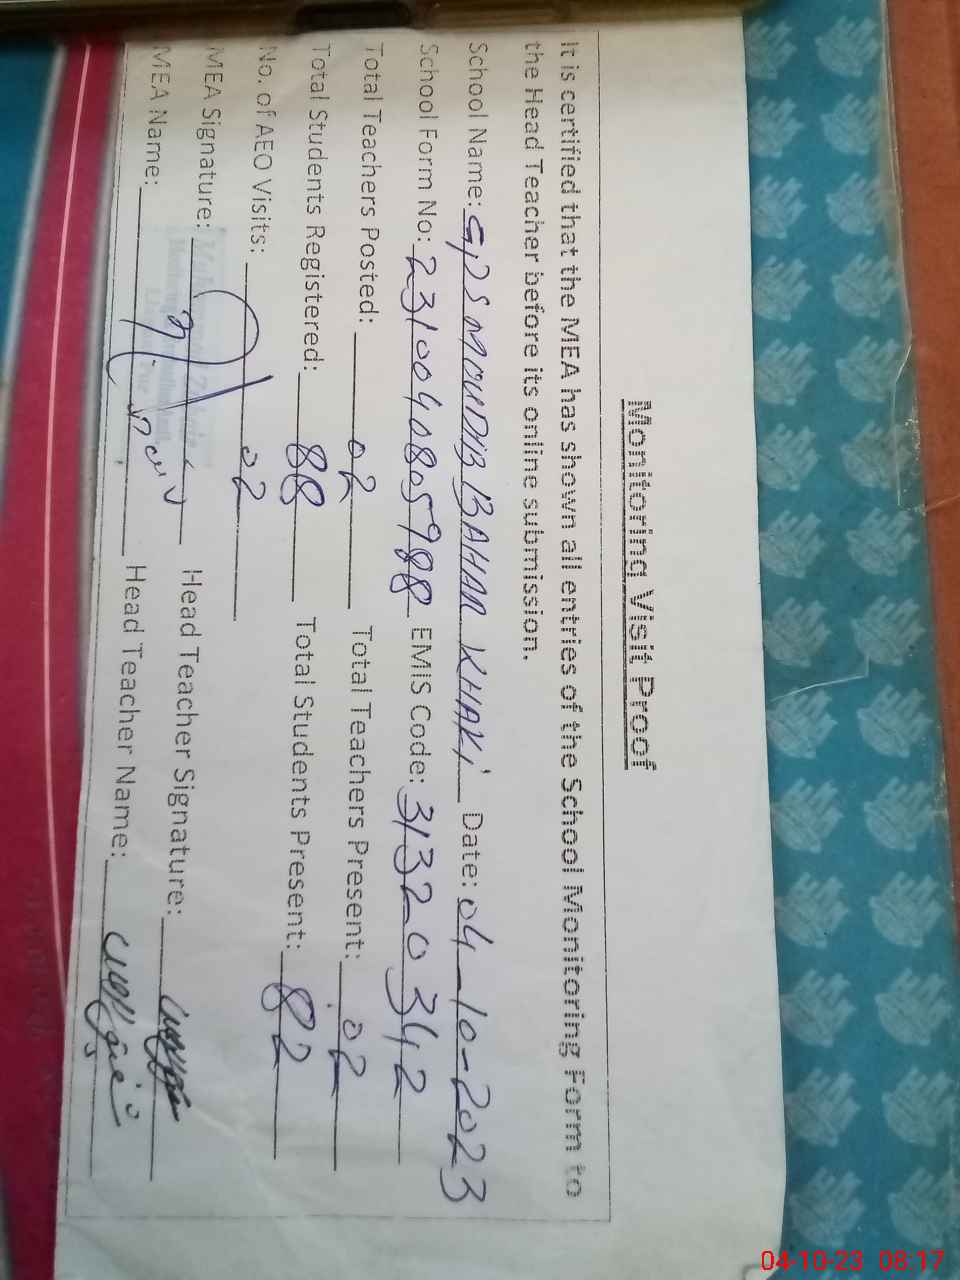 Monitoring Visit Proof
It is certified that the MEA has shown all entries of the School Monitoring Form to
the Head Teacher before its online submission.
School Name: GPS MOUDIB BAHAR KHAKI Date: 04-10-2023
School Form No: 2310040805988 EMIS Code: 31320342
Total Teachers Posted: 02 Total Teachers Present: 02
Total Students Registered: 88 Total Students Present: 82
No. of AEO Visits: 02
MEA Signature: Head Teacher Signature:
MEA Name: Head Teacher Name:
04-10-23 08:17